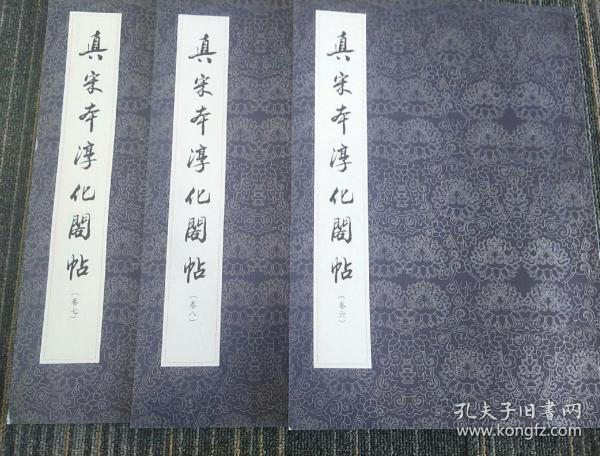 真宋本淳化閣帖
（卷七）
真宋本淳化閣帖
（卷八）
真宋本淳化閣帖
（卷六）
孔夫子旧書网
www.kongfz.com